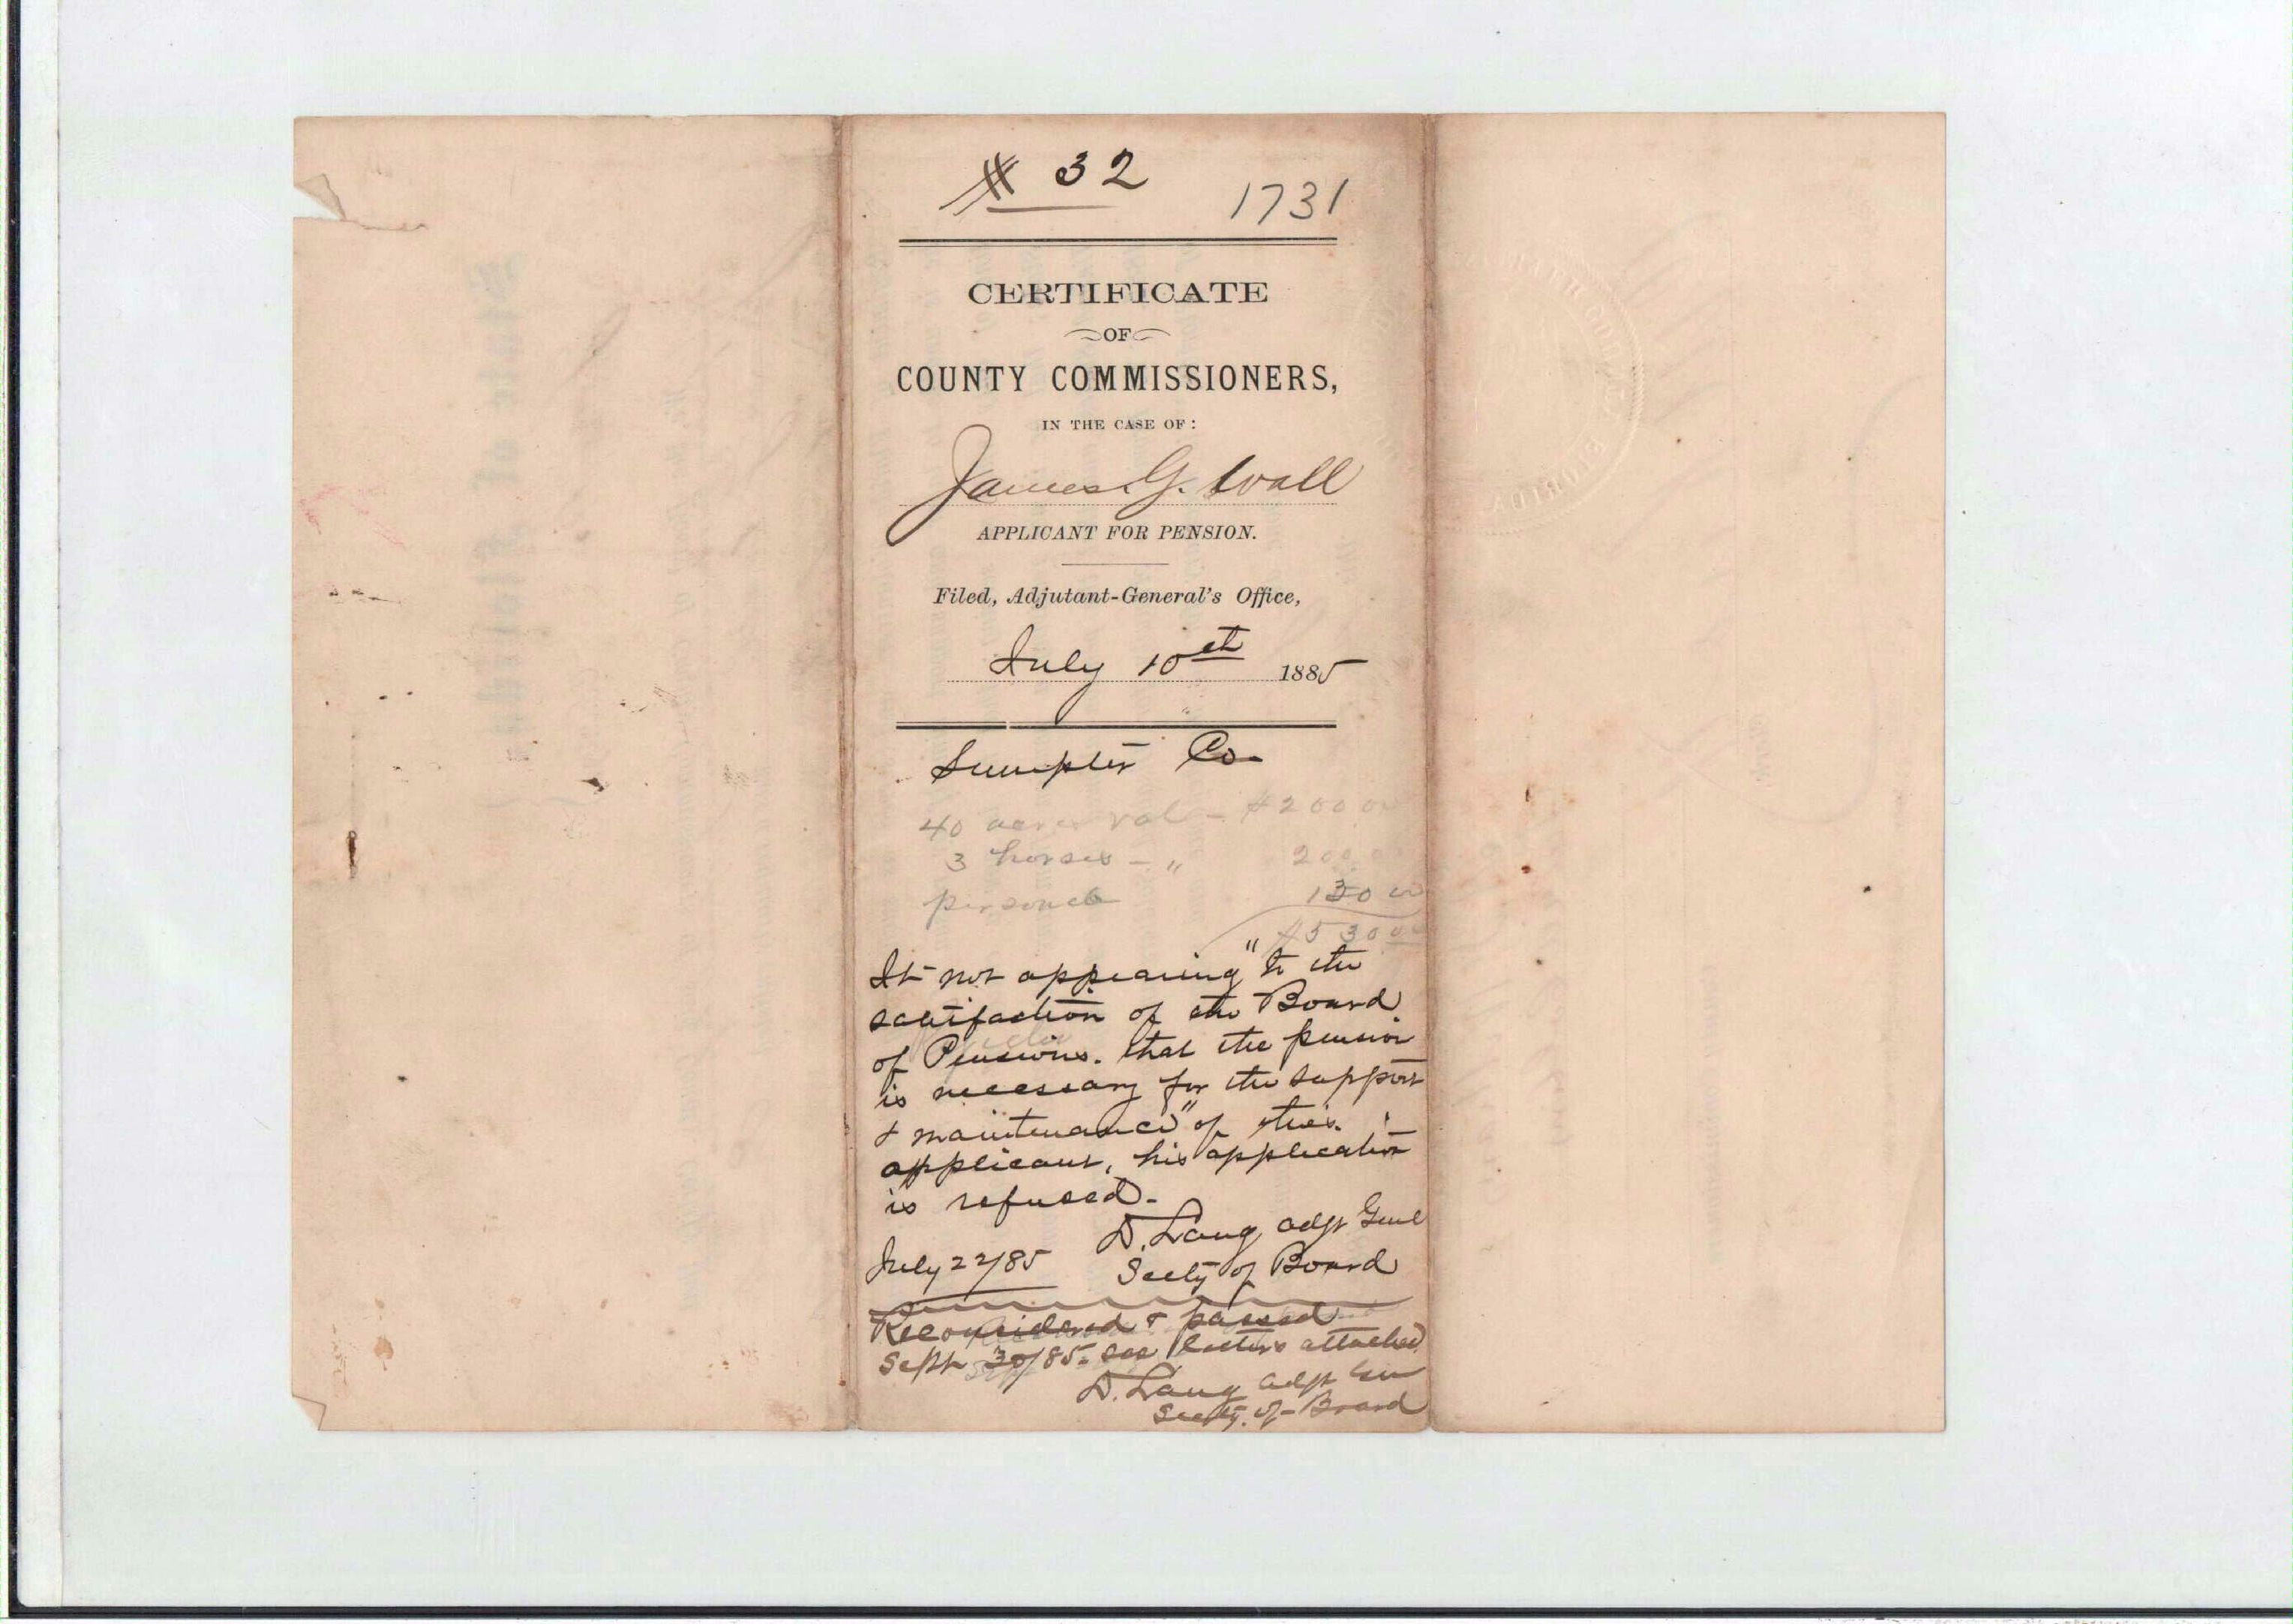 # 32
1731
CERTIFICATE
OF
COUNTY COMMISSIONERS,
IN THE CASE OF:
James. G. Wall
APPLICANT FOR PENSION.
Filed, Adjutant-General's Office,
July 10th 1885
Sumpter Co.
40 acres val - $200 00
3 horses - " 200 00
personal 130 00
$530 00
It not appearing "to the
satisfaction of the Board
of Pensions. that the pension
is necessary for the support
& maintenance" of this.
applicant, his application
is refused. -
D. Lang adjt Genl
July 22/85 Secty of Board
Reconsidered & passed
Sept 30/85. see letters attached
D. Lang adjt Gen
Secty. of - Board